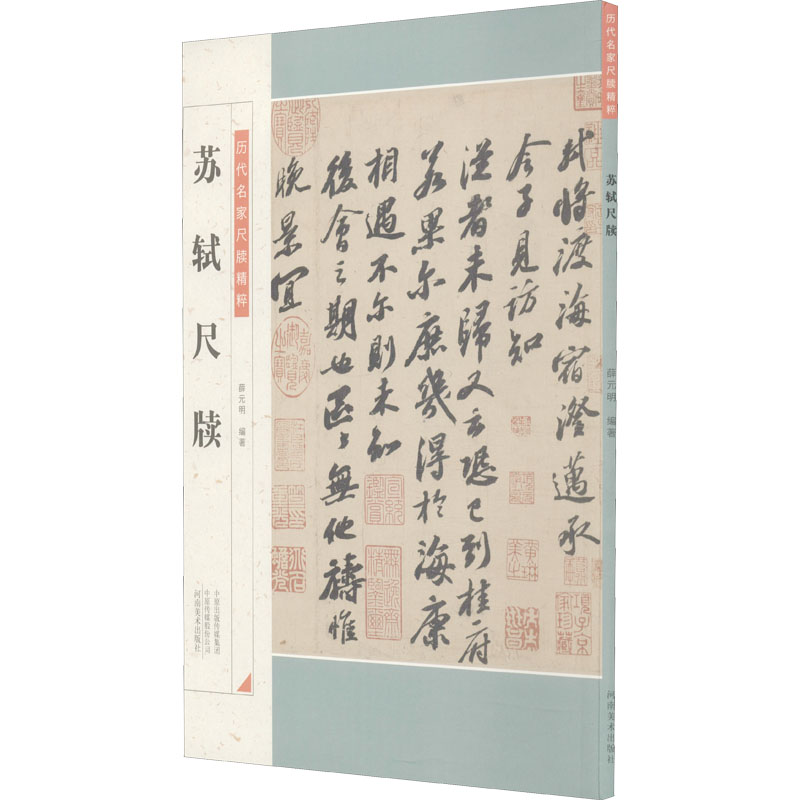 历代名家尺牍精粹
苏轼尺牍
薛元明 编著
中原出版传媒集团
中原传媒股份公司
河南美术出版社
軾將渡海宿澄邁承
令子見訪知
從者未歸又云恐已到桂府
若果尔庶幾得於海康
相遇不尔則未知
後會之期也區區無他禱惟
晚景宜
項子京家珍藏
历代名家尺牍精粹
苏轼尺牍
薛元明 编著
河南美术出版社